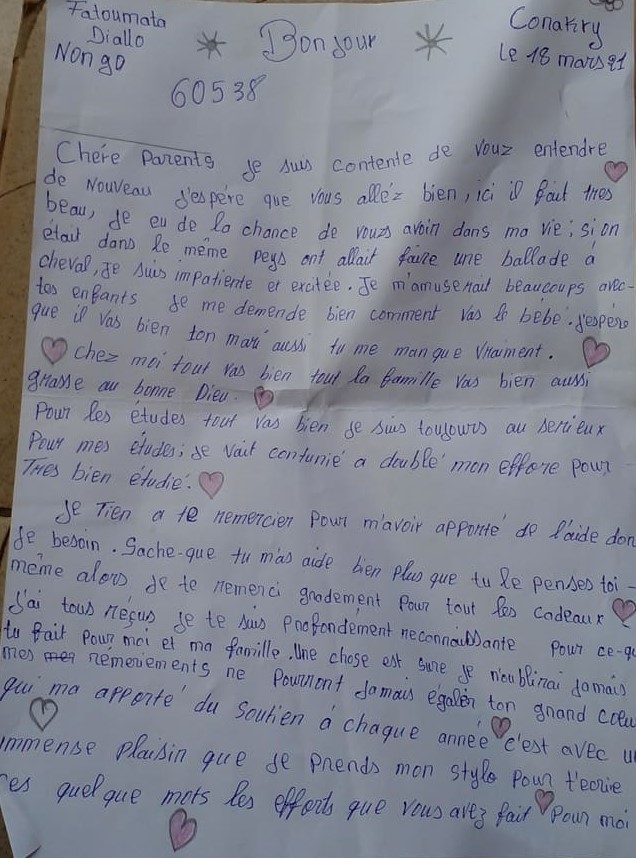 Fatoumata
Diallo
Nongo
Bonjour
Conakry
Le 18 mars 21
60538
Chére Parents je suis contente de vouz entendre
de Nouveau j'espére que vous alléz bien, ici il fait tres
beau, je eu de la chance de vouzs avoir dans ma vie; si on
était dans le même peys ont allait faire une ballade à
cheval, je suis impatiente et excitée. Je m'amuserait beaucoups avec-
tes enfants je me demende bien comment vas le bébé. j'espére
que il vas bien ton mari aussi tu me manque vraiment.
chez moi tout vas bien tout la famille vas bien aussi
grasse au bonne Dieu.
Pour les études tout vas bien je suis toujours au serieux
Pour mes études; je vait contunié a doublé mon effore pour
Tres bien étudié.
Je Tien a te remercier Pour m'avoir apporté de l'aide don
je besoin. Sache-que tu m'as aide bien plus que tu le penses toi-
même alors je te remerci gradement Pour tout les cadeaux
J'ai tous réçus je te suis profondément reconnaissante Pour ce-qu
tu fait Pour moi et ma famille. Une chose est sure je n'oublirai jamais
mes mer rémeriements ne Pourront jamais égaler ton grand coeu
qui ma apporté du soutien à chaque année c'est avec u
immense plaisir que je prends mon stylo Pour t'ecrie
ces quelque mots les efforts que vous avez fait Pour moi